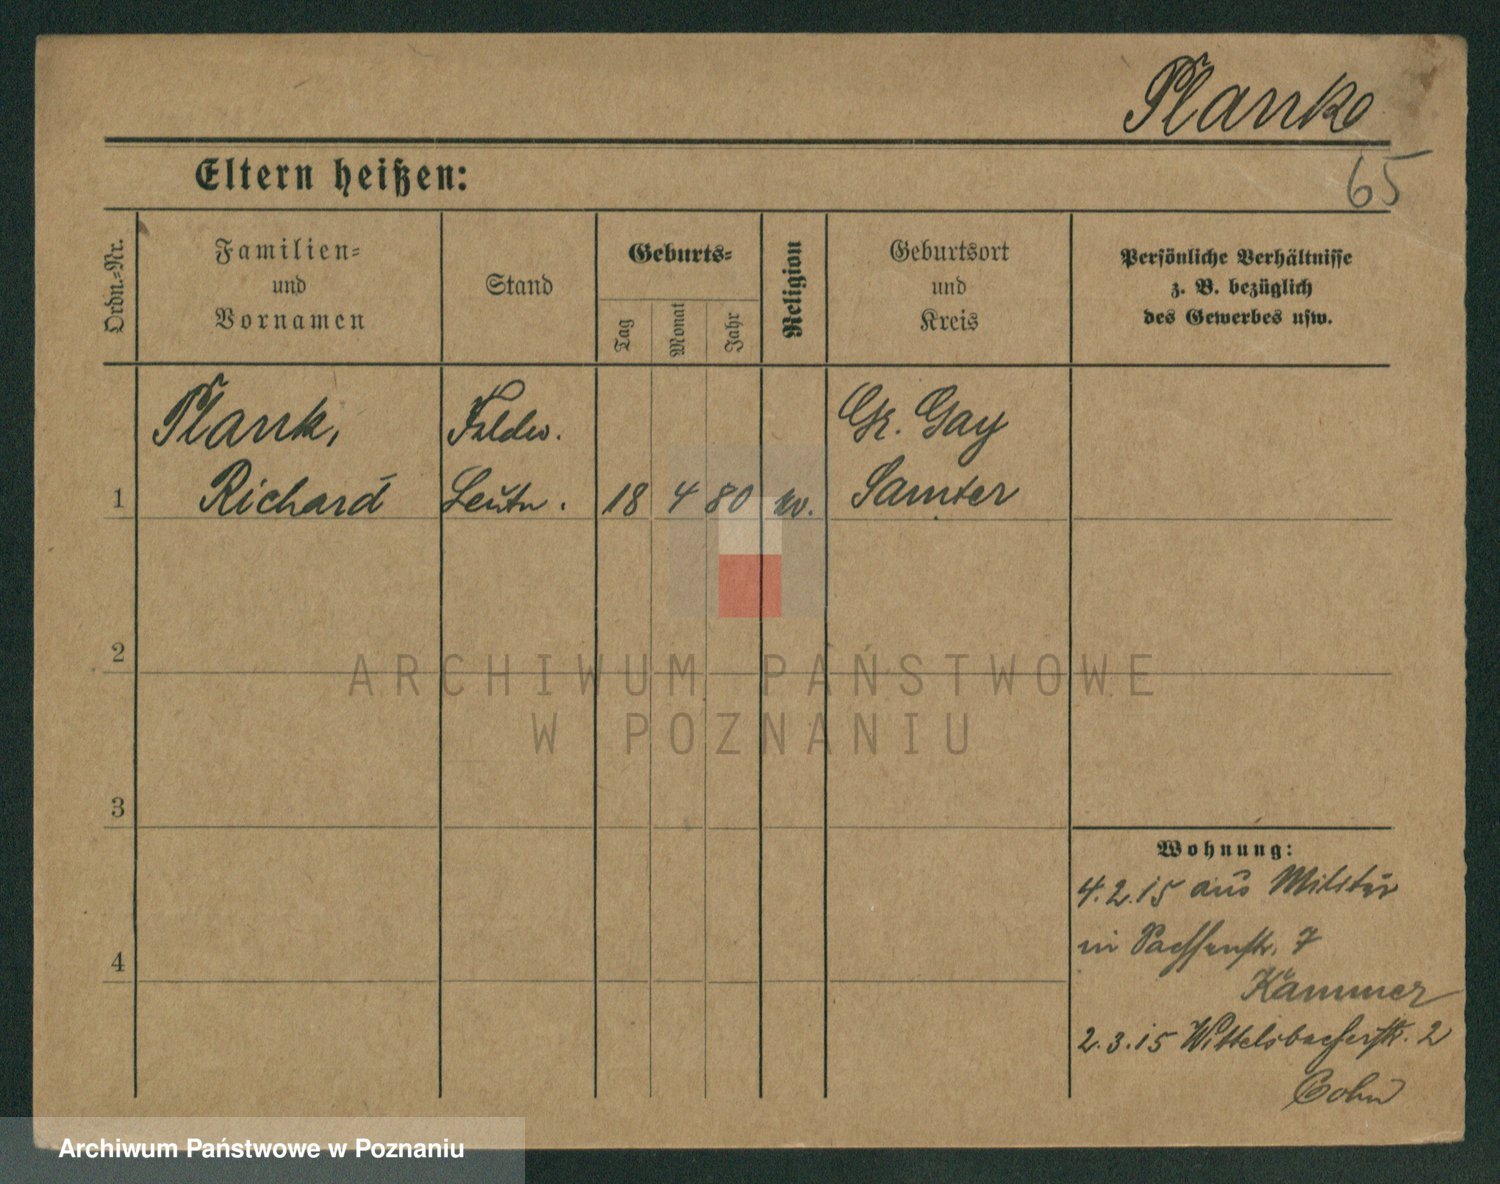 Plank
65
Eltern heißen:
Ordn.-Nr.
Familien-
und
Vornamen
Stand
Geburts-
Tag
Monat
Jahr
Religion
Geburtsort
und
Kreis
Persönliche Verhältnisse
z. B. bezüglich
des Gewerbes usw.
Plank,
Richard
Feldw.
Leutn.
1
18 4 80
Gr. Gay
Samter
2
3
4
Wohnung:
4.2.15 aus Militär
in 7
Kammer
2.3.15 Wittelsbacherstr. 2
Cohn
ARCHIWUM PAŃSTWOWE
W POZNANIU
Archiwum Państwowe w Poznaniu